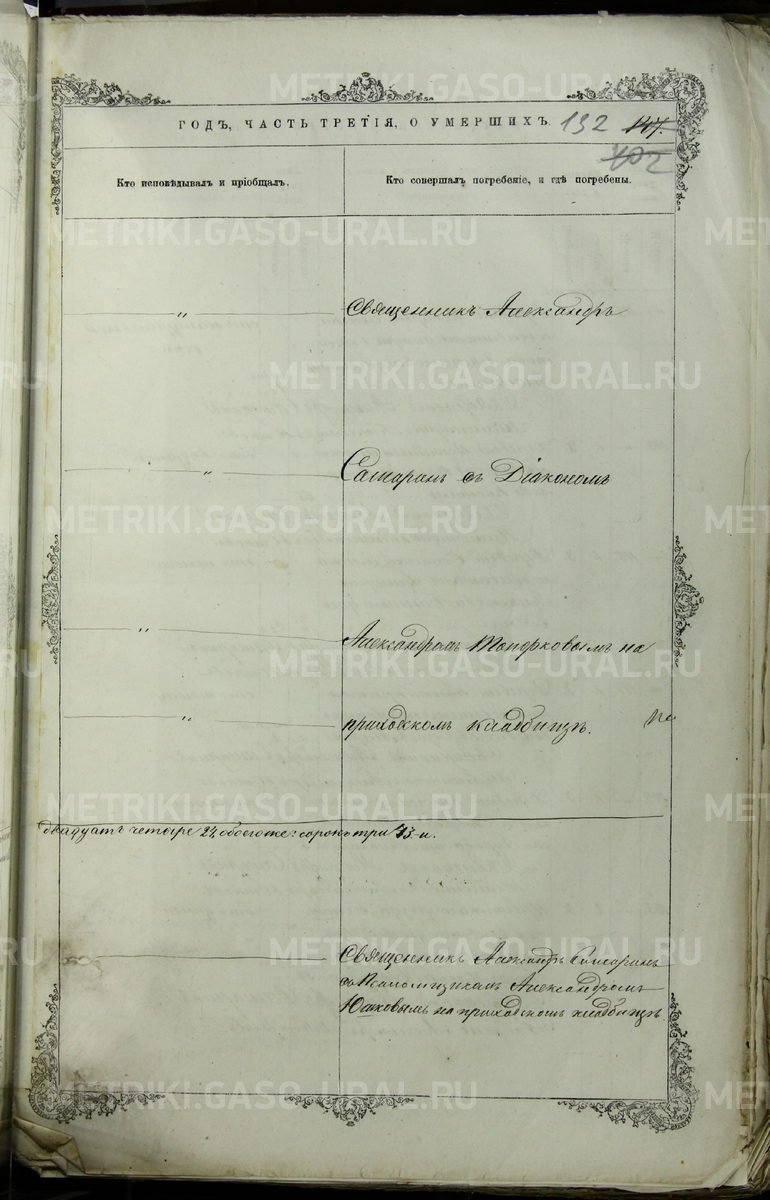 ГОДЪ, ЧАСТЬ ТРЕТІЯ, О УМЕРШИХЪ. 192 147.
402
Кто исповѣдывалъ и пріобщалъ.
Кто совершалъ погребеніе, и гдѣ погребены.
„ Священникъ Александръ
„ Сатаринъ съ Діакономъ
„ Александромъ Топорковымъ на
„ приходскомъ кладбищѣ.
двадцать четыре 24, обоего же: сорокъ три 43-и.
Священникъ Александръ Сатаринъ
съ Псаломщикомъ Александромъ
Юшковымъ на приходскомъ кладбищѣ
METRIKI.GASO-URAL.RU